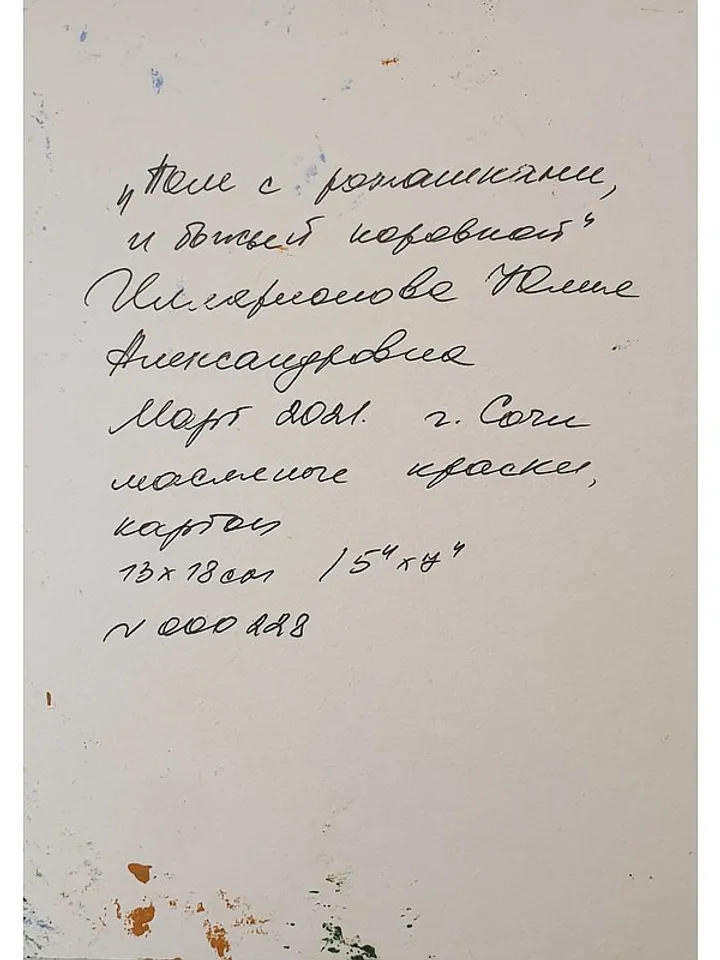 „Поле с ромашками,
и божьей коровкой"
Илларионова Юлия
Александровна
Март 2021. г. Сочи
масляные краски,
картон
13х18см / 5"х7"
N 000228